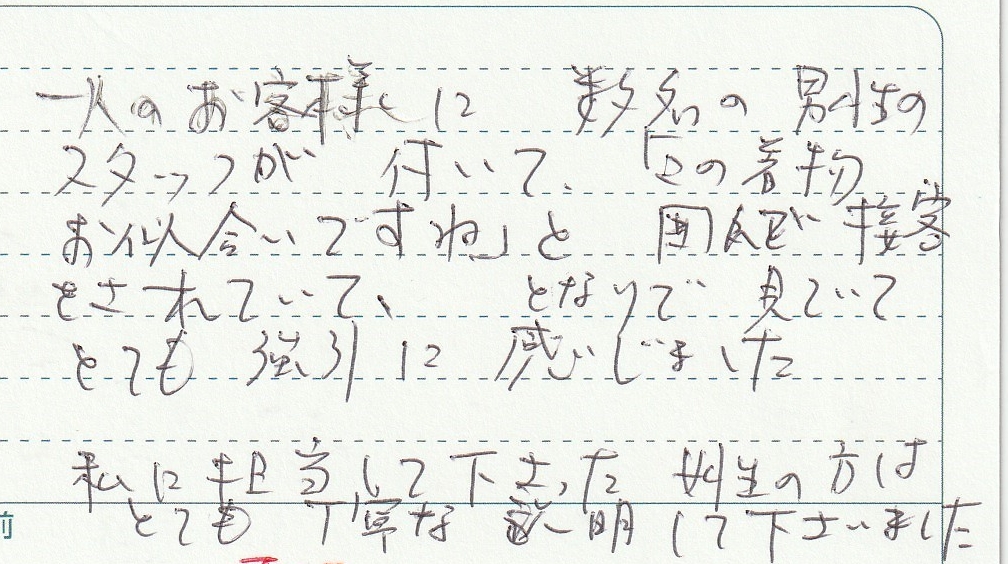 一人のお客様に 数名の男性の
スタッフが 付いて、「この着物
お似合いですね」と 囲んで接客
をされていて、 となりで 見ていて
とても 強引に 感じました
私に担当して下さった 女性の方は
とても 丁寧な 説明して下さいました
前